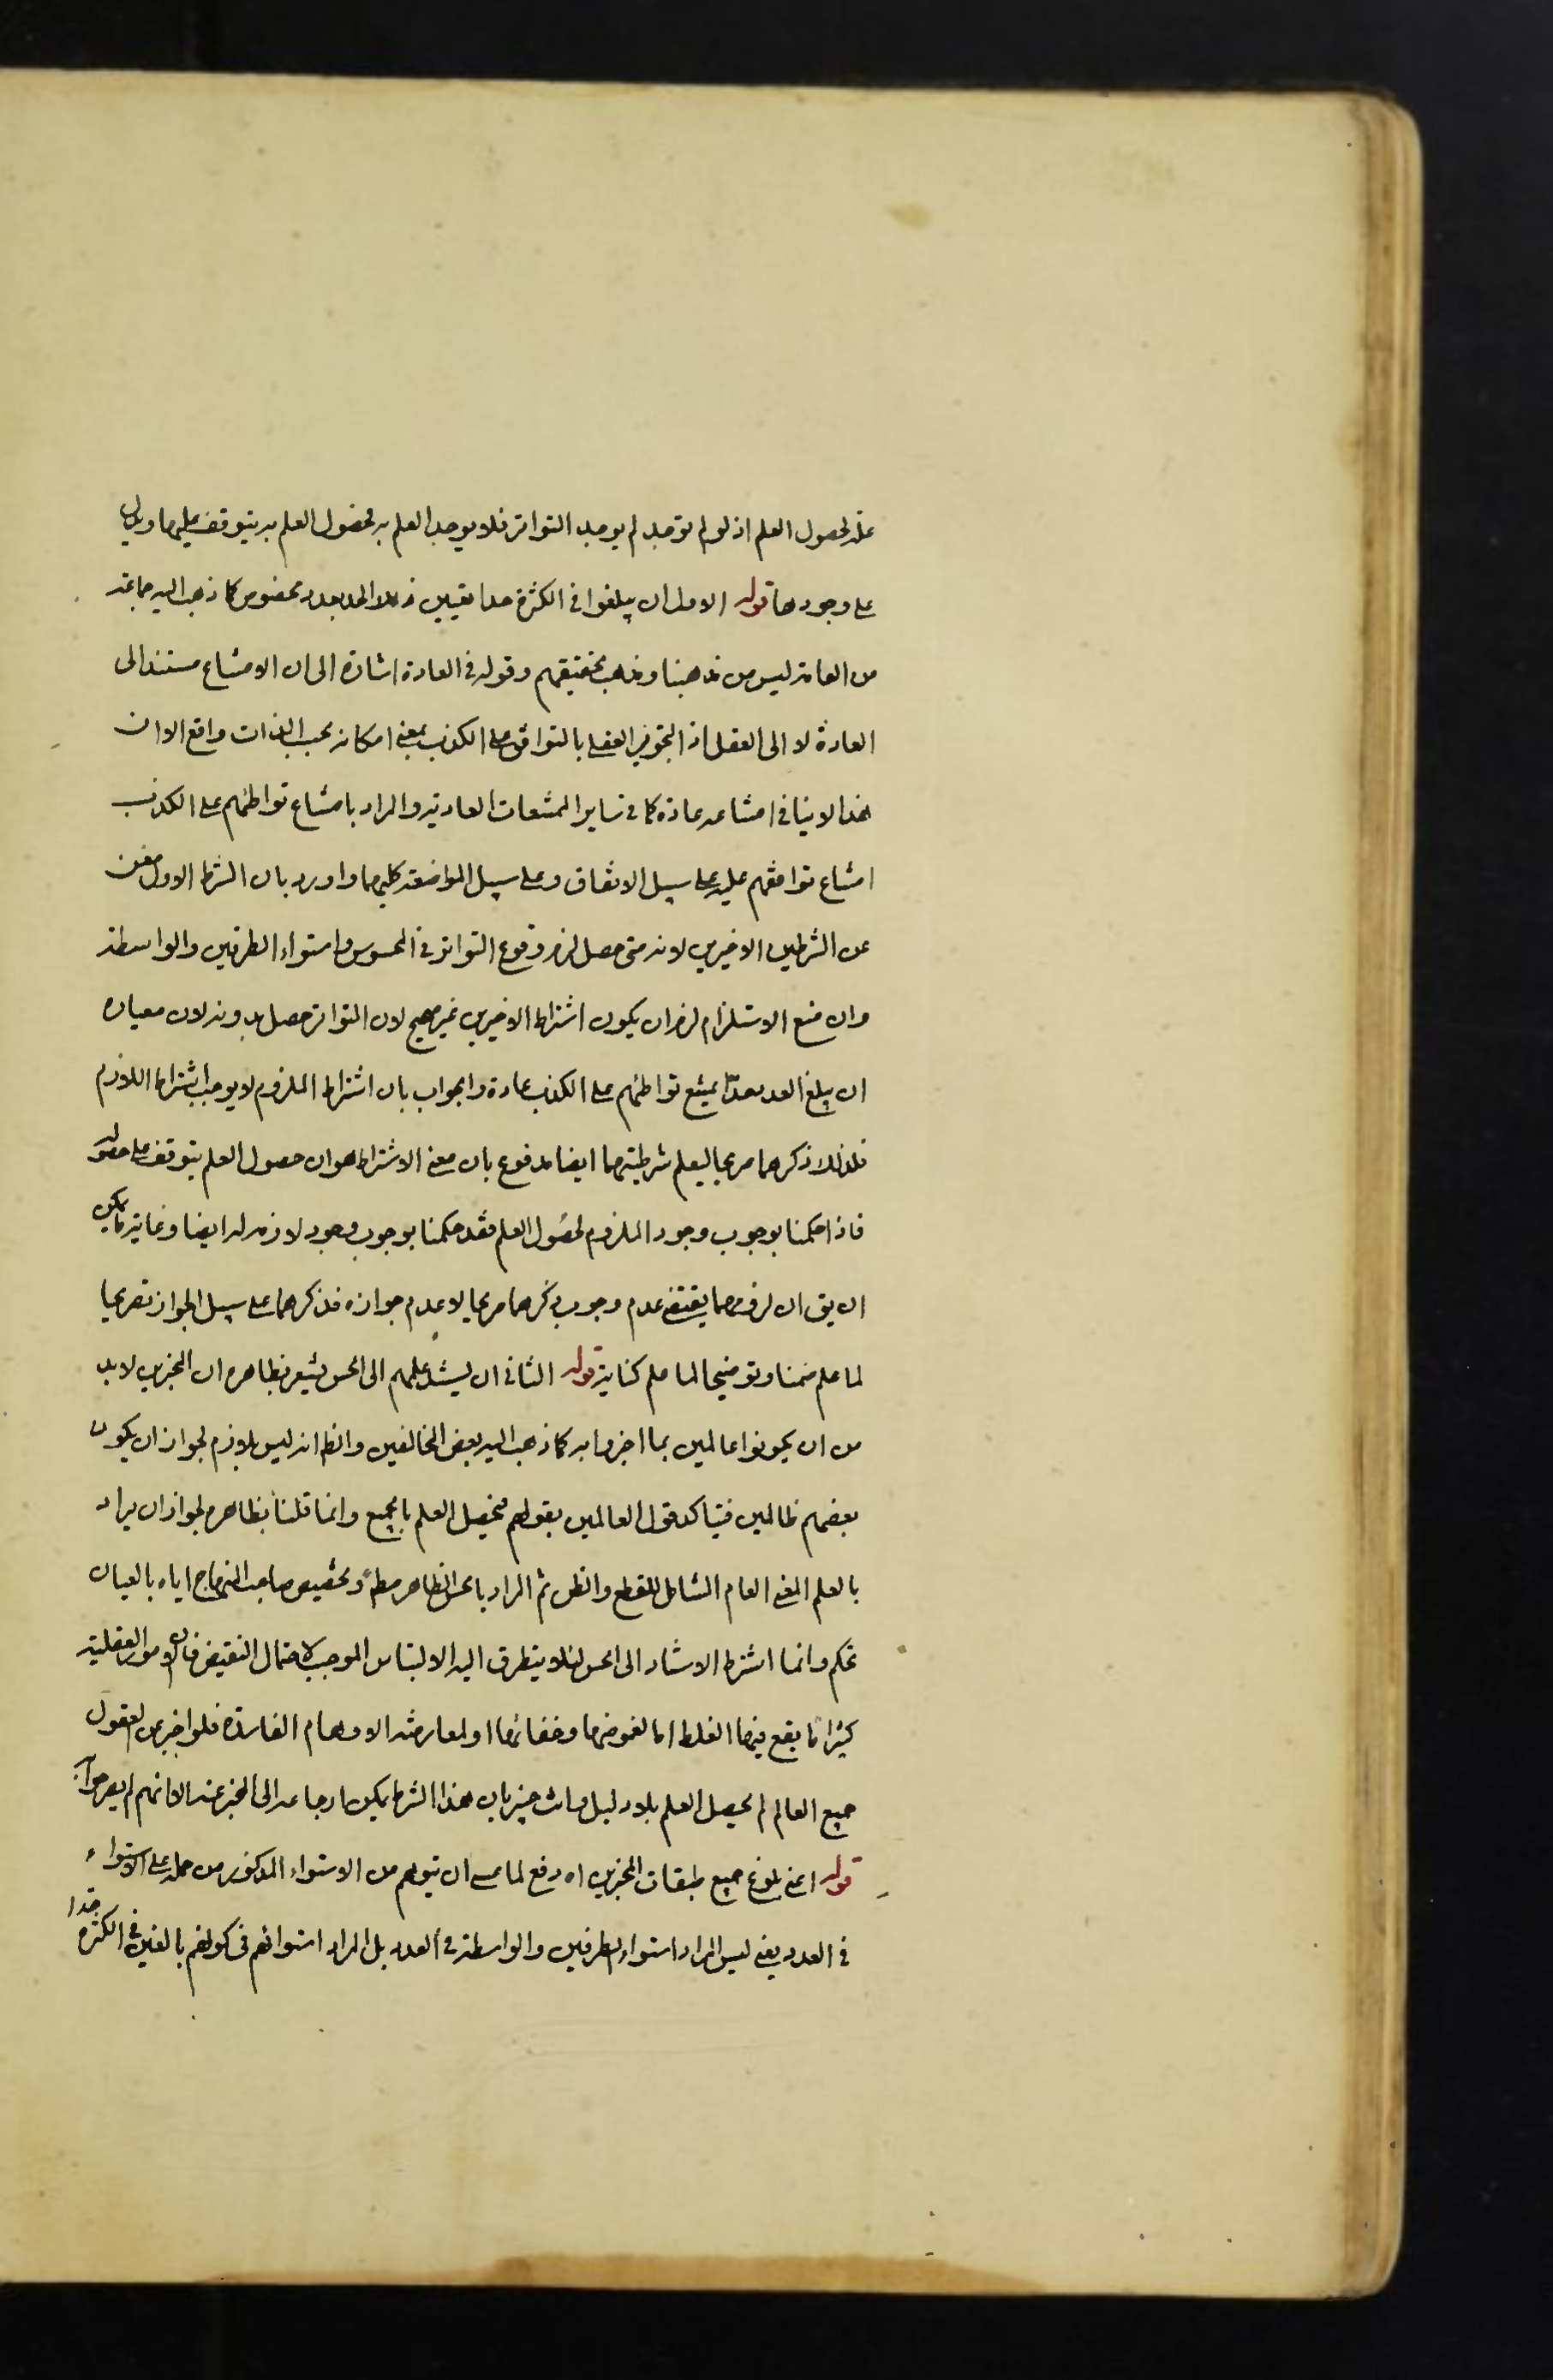 علة لحصول العلم اذ لو لم توجد لم يوجد التواتر فلا يوجد العلم به فحصول العلم به يتوقف عليها ويدل
على وجودها قوله الاول ان يبلغوا في الكثرة حدا تعيين ذلك الحد بعدد مخصوص كما ذهب اليه جماعة
من العامة ليس من مذهبنا ومذهب محققيهم وقوله في العادة اشارة الى ان الامتناع مستند الى
العادة لا الى العقل اذ التجويز العقلي بالتوافق على الكذب بمعنى امكانه بحسب الذات واقع الا ان
هذا لا ينافي امتناعه عادة كما في ساير الممتنعات العادية والمراد بامتناع تواطئهم على الكذب
امتناع توافقهم عليه على سبيل الاتفاق وعلى سبيل المواضعة كليهما واورد بان الشرط الاول مغن
عن الشرطين الاخيرين لانه متى حصل لزم وقوع التواتر في المحسوس واستواء الطرفين والواسطة
وان منع الاستلزام لزم ان يكون اشتراط الاخيرين غير صحيح لان التواتر حصل بدونه لان معياره
ان يبلغ العدد حدا يمتنع تواطئهم على الكذب عادة والجواب بان اشتراط الملزوم لا يوجب اشتراط اللازم
فلذلك ذكرهما صريحا ليعلم شرطيتهما ايضا مدفوع بان معنى الاشتراط هو ان حصول العلم يتوقف على حصوله
فاذا حكمنا بوجوب وجود الملزوم لحصول العلم فقد حكمنا بوجوب وجود لازمه له ايضا وغاية ما يمكن
ان يق ان لزومهما يقتضي عدم وجوب ذكرهما صريحا لا عدم جوازه فذكرهما على سبيل الجواز تصريحا
لما علم ضمنا وتوضيحا لما علم كناية قوله الثاني ان يستند علمهم الى الحس يشعر بظاهره ان المخبرين لا بد
من ان يكونوا عالمين بما اخبروا به كما ذهب اليه بعض المخالفين والظ انه ليس بلازم لجواز ان يكون
بعضهم ظانين فيتاكد قول العالمين بقولهم فيحصل العلم بالجميع وانما قلنا بظاهره لجواز ان يراد
بالعلم المعنى العام الشامل للقطع والظن ثم المراد بالحس الظاهر مط وتخصيص صاحب المنهاج اياه بالعيان
تحكم وانما اشترط الاستناد الى الحس لئلا يتطرق اليه الالتباس الموجب لاحتمال النقيض فان الامور العقلية
كثيرا ما يقع فيها الغلط اما لغموضها وخفائها او لمعارضة الاوهام الفاسدة فلو اخبر عن العقول
جميع العالم لم يحصل العلم بلا دليل وانت خبير بان هذا الشرط يمكن ارجاعه الى المخبر عنه الا انهم لم يصرحوا به
قوله اعني بلوغ جميع طبقات المخبرين اه دفع لما عسى ان يتوهم من الاستواء المذكور من حمله على الاستواء
في العدد يعني ليس المراد استواء الطرفين والواسطة في العدد بل المراد استوائهم في كونهم بالغين في الكثرة حدا